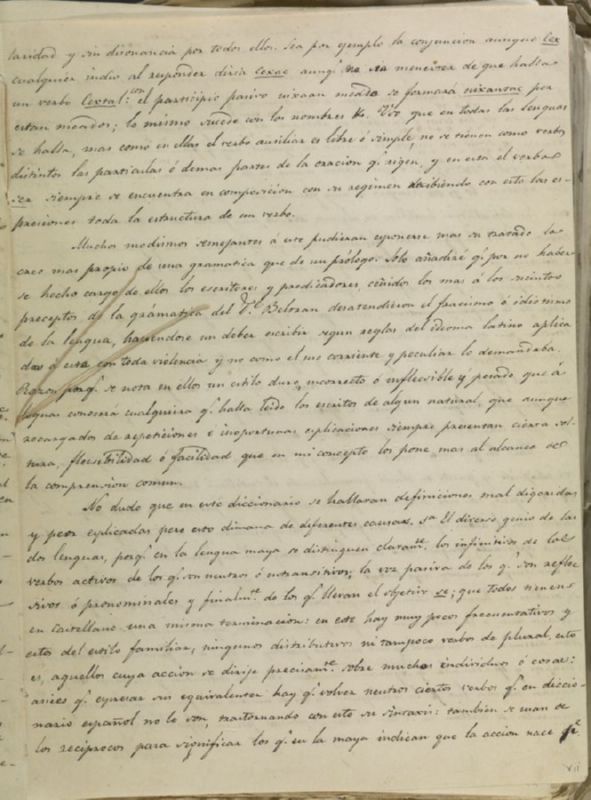 laridad y sin disonancia por todos ellos. Sea por ejemplo la conjuncion aunque
cualquier indio al responder diria aunq.e no sea menester de que halla
un verbo con el participio pasivo se formará por
estan lo mismo sucede con los nombres &. Veo que en todas las lenguas
se halla, mas como en ellas el verbo auxiliar es libre ó simple, no se tienen como verbos
distintos las particulas ó demas partes de la oracion q.e rigen, y en esta el verbo
ser siempre se encuentra en composicion con su regimen recibiendo con esto las es-
presiones toda la estructura de un verbo.
Muchos modismos semejantes á este pudieran esponerse mas su tratado lo
creo mas propio de una gramatica que de un prólogo. Solo añadiré q.e por no haber-
se hecho cargo de ellos los escritores y predicadores, ceñidos los mas á los
preceptos de la gramatica del P.e Beltran desatendieron el fraseismo é idiotismo
de la lengua, haciendose un deber escribir segun reglas del idioma latino aplica
das á esta con toda violencia y no como el uso corriente y peculiar lo demandaba.
Razon porq.e se nota en ellos un estilo duro, incorrecto ó inflecsible y pesado que á
leguas conocerá cualquiera q.e halla leido los escritos de algun natural, que aunque
recargados de repeticiones e inoportunas esplicaciones siempre presentan cierta sol-
tura, flecsibilidad ó facilidad que en mi concepto los pone mas al alcance de
la comprension comun.
No dudo que en este diccionario se hallaran definiciones mal digeridas
y peor esplicadas pero esto dimana de diferentes causas. 1.a El diverso genio de las
dos lenguas, porq.e en la lengua maya se distinguen claram.te los infinitivos de los
verbos activos de los q.e son neutros ó intransitivos, la voz pasiva de los q.e son refle
sivos ó pronominales y finalm.te de los q.e llevan el se; que todos tienen
en Castellano una misma terminacion: en este hay muy pocos frecuentativos y
estos del estilo familiar, ningunos distributivos ni tampoco verbos de plural, esto
es, aquellos cuya accion se dirije precisam.te sobre muchos individuos ó cosas:
asi es q.e espresar sus equivalentes hay q.e volver neutros ciertos verbos q.e en diccio-
nario español no lo son, trastornando con esto su sintaxis: tambien se usan de
los reciprocos para significar los q.e en la maya indican que la accion nace p.r
VII